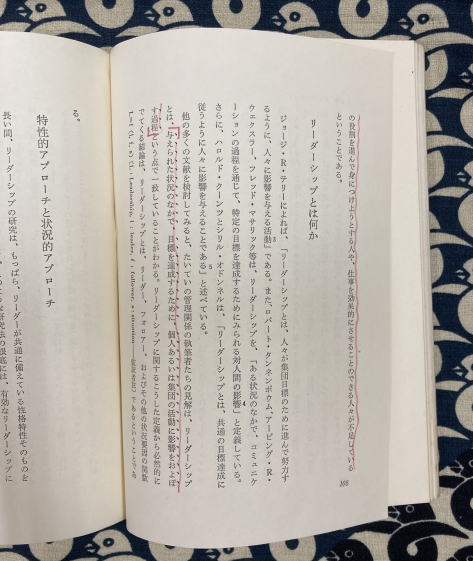 の役割を進んで身につけようとする人や、仕事を効果的にさせることのできる人々が不足している
ということである。
リーダーシップとは何か
ジョージ・R・テリーによれば、「リーダーシップとは、人々が集団目標のために進んで努力す
るように、人々に影響を与える活動」3である。また、ロバート・タンネンボウム、アービング・R・
ウェクスラー、フレッド・マサリック等は、リーダーシップを、「ある状況のなかで、コミュニケ
ーションの過程を通じて、特定の目標を達成するためにみられる対人間の影響」4と定義している。
さらに、ハロルド・クーンツとシリル・オドンネルは、「リーダーシップとは、共通の目標達成に
従うように人々に影響を与えることである」5と述べている。
他の多くの文献を検討してみると、たいていの管理関係の執筆者たちの見解は、リーダーシップ
とは、与えられた状況のなかで、目標を達成するために、個人あるいは集団の活動に影響をおよぼ
す過程という点で一致していることがわかる。リーダーシップに関するこうした定義から必然的に
でてくる結論は、リーダーシップとは、リーダー、フォロアー、およびその他の状況要因の関数
L=f (l, f, s) (L : Leadership, l : leader, f : follower, s : situation——仮説者記) であるということであ
106
る。
特性的アプローチと状況的アプローチ
長い間、リーダーシップの研究は、もっぱら、リーダーが共通に備えている性格特性そのものを